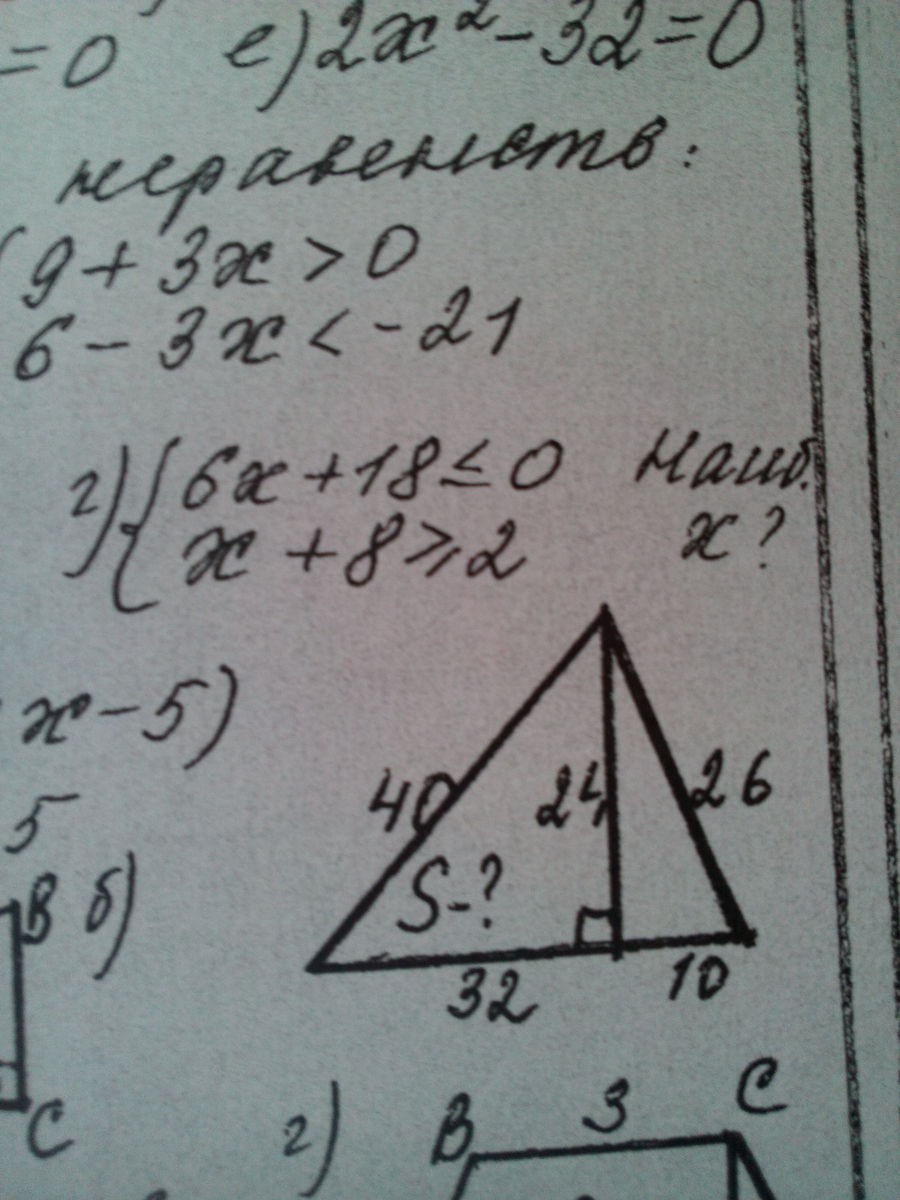 = 0 е) 2x² - 32 = 0
неравенств:
9 + 3x > 0
6 - 3x < -21
г) { 6x + 18 ≤ 0 Наиб.
x + 8 ≥ 2 x?
x - 5)
5
40 24 26
S-?
В б)
32 10
С
г) В 3 С